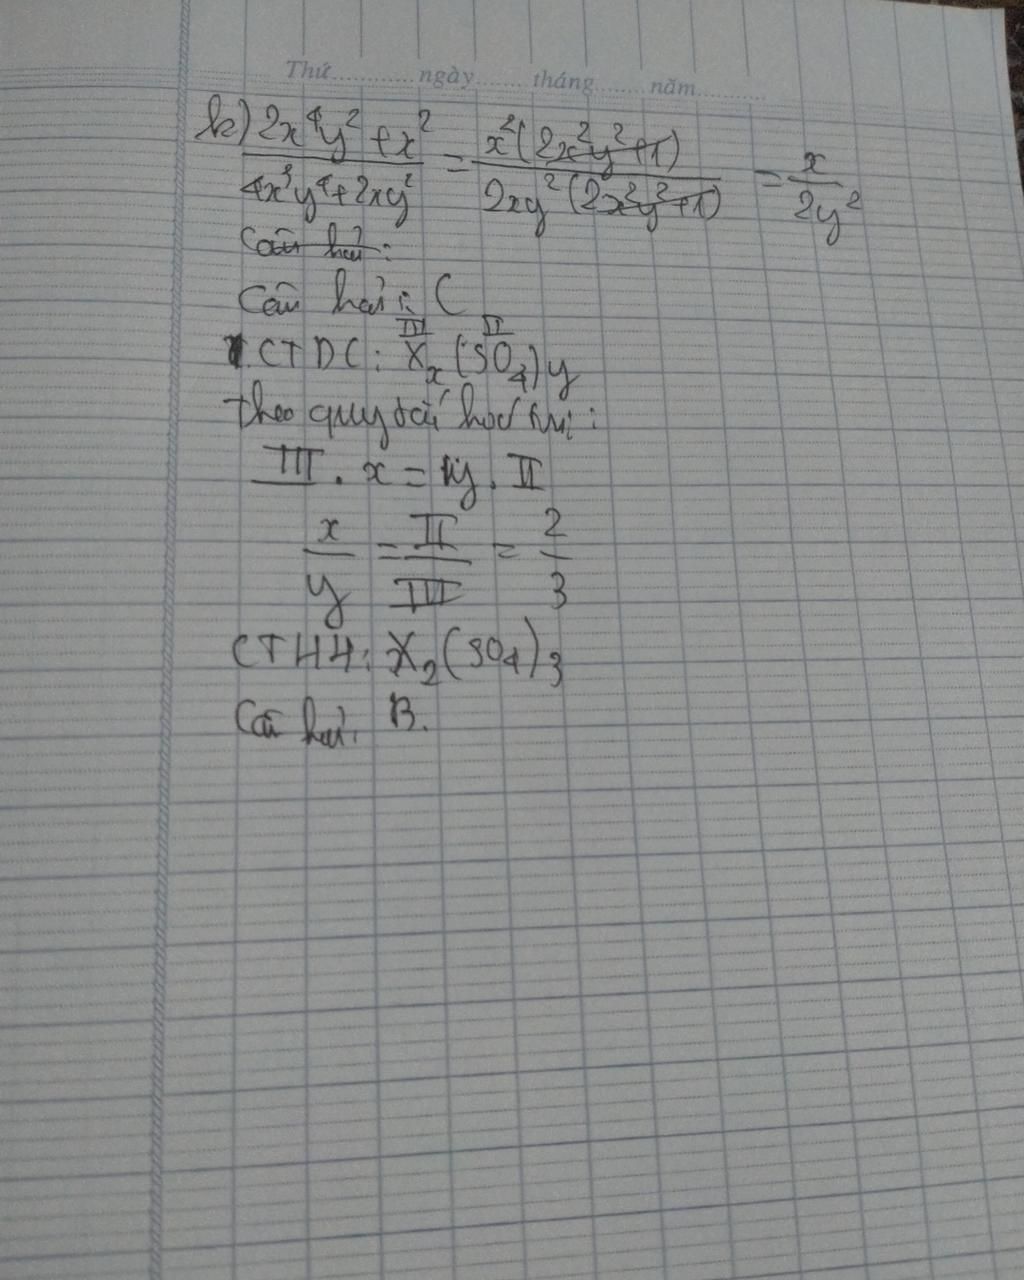 Thứ............ngày.......tháng.......năm..........
k) (2x⁴y² + x²)/(4x³y⁴ + 2xy²) = x²(2x²y² + 1)/2xy²(2x²y² + 1) = x/2y²
Câu hỏi:
Câu hỏi: C
CTDC: X_x^III (SO₄)_y^II
theo quy tắc hoá trị:
III . x = y . II
x/y = II/III = 2/3
CTHH: X₂(SO₄)₃
Câu hỏi: B.